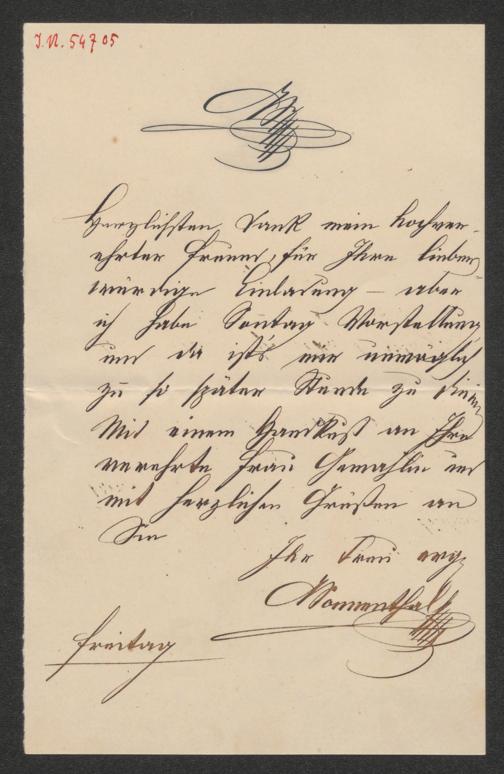 I.N. 54705
Herzlichsten Dank mein hochver-
ehrter Freund, für Ihre liebens
würdige Einladung – aber
ich habe Sontag Vorstellung
und da ist's mir unmöglich
zu so später Stunde zu
Mit einem Handkuß an Ihre
verehrte Frau Gemahlin und
mit herzlichen Grüßen an
Sie
Ihr treu erg.
ASonnenthal
Freitag